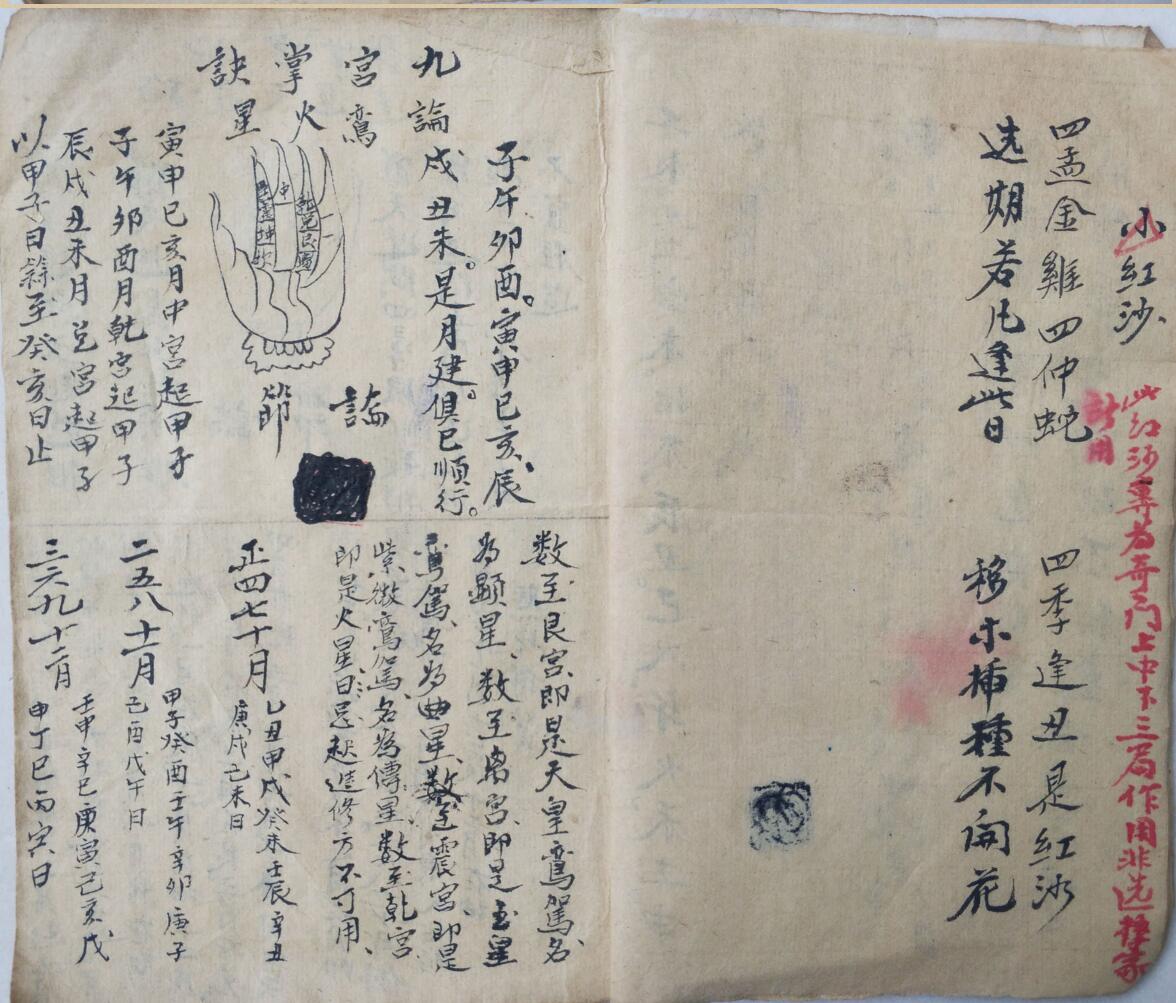 小紅沙
此紅沙專為奇門上中下三局作用非选擇家
計用
四孟金雞四仲蛇
四季逢丑是紅沙
选期若凡逢此日
移木插種不開花
九宮掌訣
論鸞火星
子午卯酉。寅申巳亥、辰
戌丑未。是月建。俱巳順行。
論節
寅申巳亥月中宮起甲子
子午卯酉月乾宮起甲子
辰戌丑未月兌宮起甲子
以甲子日餘至癸亥日止
数至艮宮、即是天皇鸞駕名
為顯星、数至离宮、即是玉皇
鸞駕、名為曲星、数至震宮、即是
紫微鸞駕、名為傅星、数至乾宮
即是火星日、忌起造修方不可用、
正四七十月
乙丑甲戌癸未壬辰辛丑
庚戌己未日
二五八十一月
甲子癸酉壬午辛卯庚子
己酉戊午日
三六九十二月
壬申辛巳庚寅己亥戊
申丁巳丙寅日
中
乾兌艮離